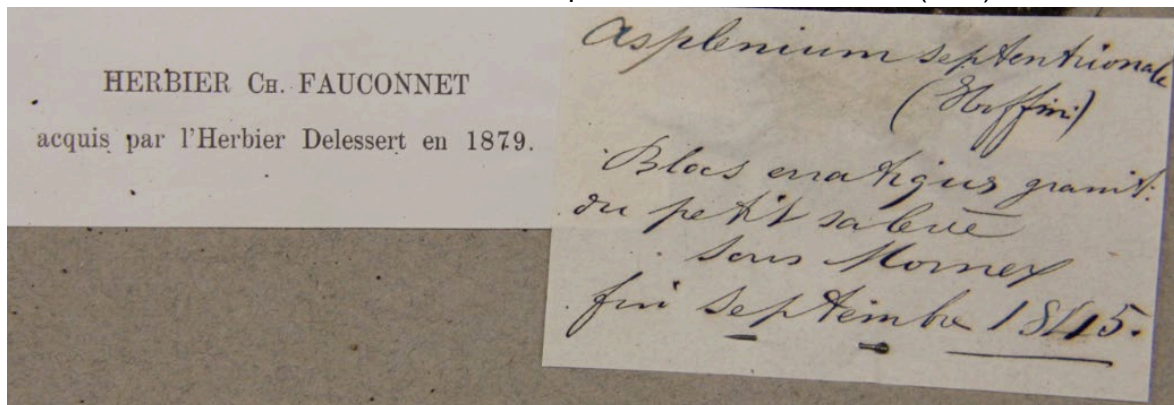 HERBIER CH. FAUCONNET
acquis par l'Herbier Delessert en 1879.
Asplenium septentrionale
(Hoffm:)
Blocs erratiques granit:
du petit salève
sous Mornex
fin septembre 1845.